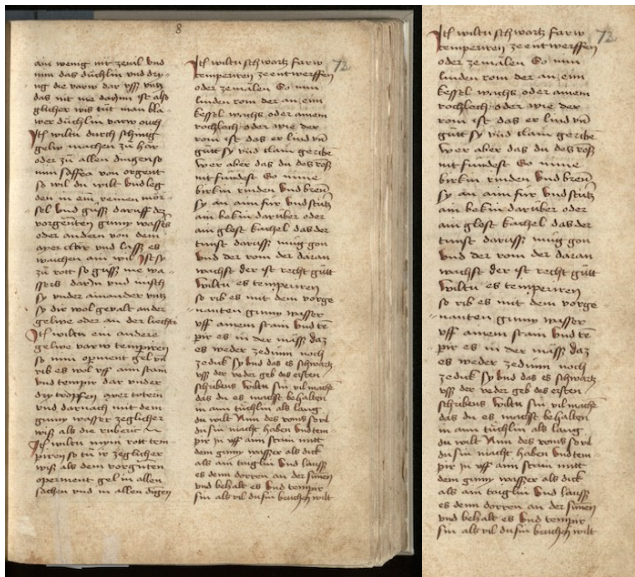 8
ain wenig mit zenil vnd
nim das düchlin vnd
die varw dar vss
das nit me darinn ist also
glicher wis tüt man bla
wer düchlin varw ouch
Ich wiltu durch schinig
gelw machen zü hor
oder zü allen dingen so
nim saffra von orgent
so vil du wilt vnd leg
den in ein reinen mör
sel vnd güss daruff dez
vorgenten ginny wassers
oder andern von dem
ayer clor vnd lass es
waichen ain wil Ist sy
zü rott so güss me wa
ssers darin vnd misch
sy vnder ainander vntz
sy dir wol gevalt ander
gelwe oder an der liechti
Ich wiltu ein andere
gelwe varw tempiren
so nim opment gel vñ
rib es wol vff aim stain
vnd tempir dar vnder
dry tropffen ayer totern
vnd darnach mit dem
ginny wasser zeglicher
wiss als die rubein
Ich wiltu minn rott tem
piren so tü ir zeglicher
wiss als dem vorgnten
operment gel in allen
sachen vnd in allen digen
72
Ich wiltu schwartz farw
temperiren ze entwerffen
oder zemalen So nim
linden rom der an eim
kessel wachs oder ainem
kochloch oder wie der
rom ist das er lind vñ
gütt sy vnd clain geribe
wer aber das du des roß
nit fündest So nime
birkin rinden vnd bren
sy an aim für vnd stütz
ain bekin darüber oder
ain glest kachel das der
tunst daruss müg gon
vnd der rom der daran
wachst der ist recht gütt
wiltu es temperiren
so rib es mit dem vorge
nanten ginny wasser
vff ainem stain vnd te
pir es in der mäss daz
es weder zedünn noch
ze dick sy vnd das es schwartz
vss der veder geb des ersten
schribens wiltu sin vil machē
das du es machst behalten
in aim tüchlin als lang
du wilt Nim des roms so vil
du sin macht haben vnd tem
pir in vff aim stain mitt
dem ginny wasser als dick
als ain taiglin vnd lauss
es denn dorren an der sünnen
vnd behalt es vnd tempir
sin als vil du sin bruchen wilt
72
Ich wiltu schwartz farw
temperiren ze entwerffen
oder zemalen So nim
linden rom der an eim
kessel wachs oder ainem
kochloch oder wie der
rom ist das er lind vñ
gütt sy vnd clain geribe
wer aber das du des roß
nit fündest So nime
birkin rinden vnd bren
sy an aim für vnd stütz
ain bekin darüber oder
ain glest kachel das der
tunst daruss müg gon
vnd der rom der daran
wachst der ist recht gütt
wiltu es temperiren
so rib es mit dem vorge
nanten ginny wasser
vff ainem stain vnd te
pir es in der mäss daz
es weder zedünn noch
ze dick sy vnd das es schwartz
vss der veder geb des ersten
schribens wiltu sin vil machē
das du es machst behalten
in aim tüchlin als lang
du wilt Nim des roms so vil
du sin macht haben vnd tem
pir in vff aim stain mitt
dem ginny wasser als dick
als ain taiglin vnd lauss
es denn dorren an der sünnen
vnd behalt es vnd tempir
sin als vil du sin bruchen wilt